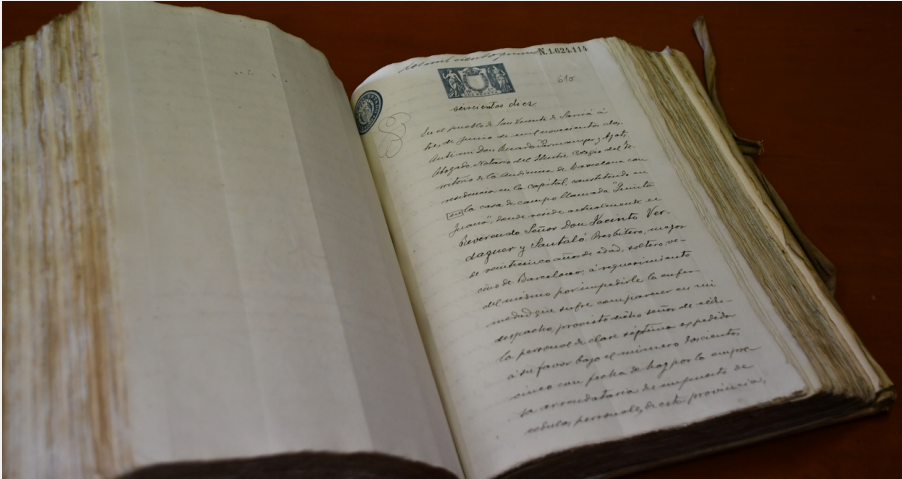 N. 1.624.114
610
seiscientos diez
En el pueblo de San Vicente de Sarriá á
de Junio de mil novecientos dos.
Ante mi Don Ricardo Permanyer y Ayats,
Abogado, Notario del Ilustre Colegio del
de la Audiencia de Barcelona con
residencia en la capital, constituido en
la casa de campo llamada "Quinta
Juana", donde reside actualmente el
Reverendo Señor Don Jacinto Ver-
daguer y Santaló Presbítero, mayor
de veinticinco años de edad, soltero, ve-
cino de Barcelona, á requerimiento
del mismo por impedirle la enfer-
medad que sufre comparecer en mi
despacho, provisto dicho señor de cédu-
la personal de clase séptima expedida
á su favor bajo el número doscientos
cinco con fecha de hoy por la empre-
sa arrendataria de impuesto de
cédulas personales de esta provincia,